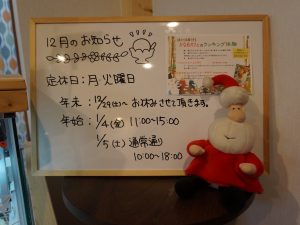 12月のお知らせ
定休日:月・火曜日
年末:12/29(土)〜お休みさせて頂きます。
年始:1/4(金) 11:00〜15:00
1/5(土) 通常通り
10:00〜18:00